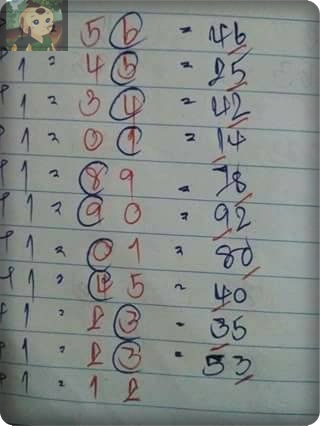 5 6 = 46
1 = 4 5 = 25
1 = 3 4 = 42
1 = 0 1 = 14
1 = 8 9 = 78
1 = 9 0 = 92
1 = 0 1 = 80
1 = 4 5 = 40
1 = 2 3 = 35
1 = 2 3 = 53
1 = 1 2